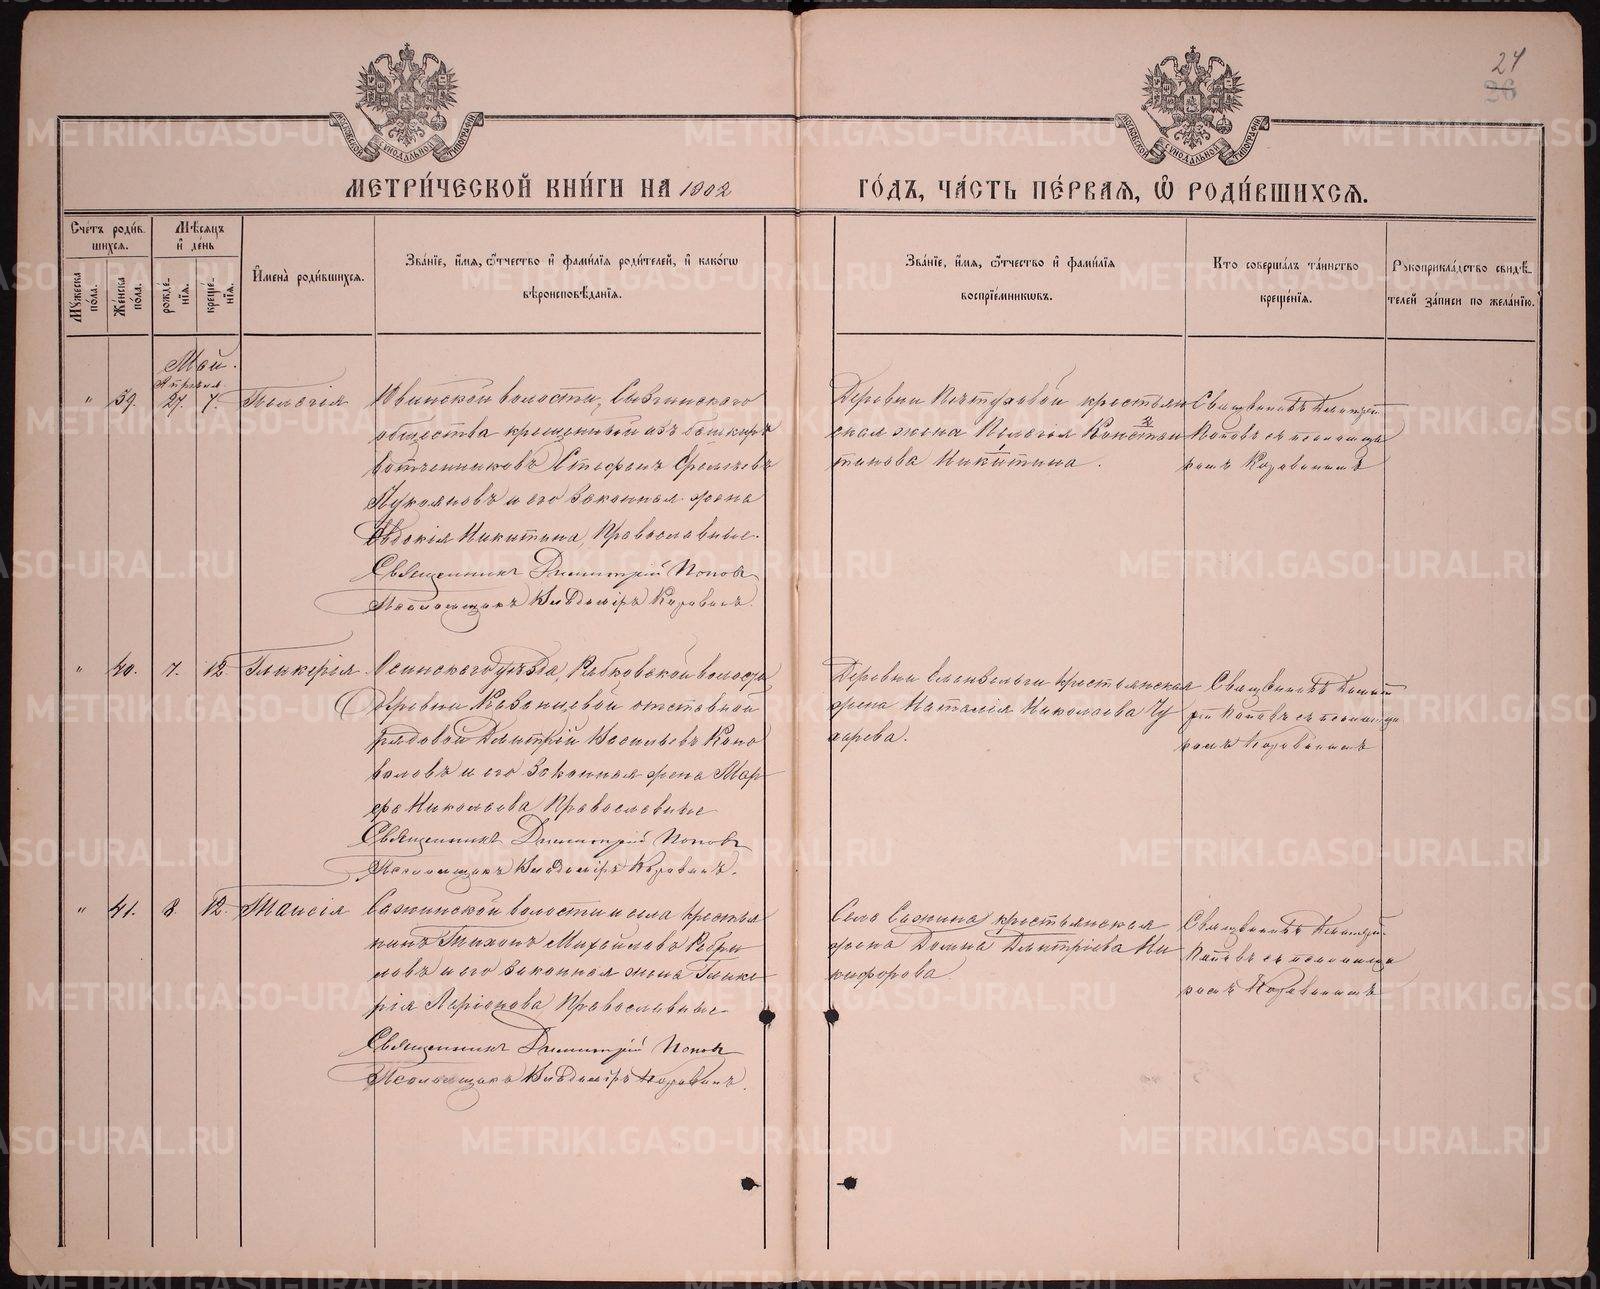 24
26
МОСКОВСКОЙ СѴНОДАЛЬНОЙ ТИПОГРАФІИ
МОСКОВСКОЙ СѴНОДАЛЬНОЙ ТИПОГРАФІИ
МЕТРИ́ЧЕСКОЙ КНИ́ГИ НА 1902
ГО́ДЪ, ЧА́СТЬ ПЕ́РВАѦ, Ѡ҆ РОДИ́ВШИХСѦ.
Сче́тъ роди́в
шихсѧ.
Мꙋ́жеска
по́ла.
Же́нска
по́ла.
Мѣ́сѧцъ
и҆ де́нь
рожде́-
нїѧ.
креще́-
нїѧ.
И҆мена̀ роди́вшихсѧ.
Зва́нїе, и҆́мѧ, ѻ҆́тчество и҆ фамѝлїѧ роди́телей, и҆ како́гѡ
вѣроисповѣ́данїѧ.
Зва́нїе, и҆́мѧ, ѻ҆́тчество и҆ фами́лїѧ
воспрїе́мникѡвъ.
Кто̀ соверша́лъ та́инство
креще́нїѧ.
Рꙋкоприкла́дство свидѣ́-
телей за́писи по жела́нїю.
Май.
Апрѣля
" 39. 27. 7. Пелагія
Ювинской волости, Сызгинскаго
общества крещенный изъ башкиръ
вотчинниковъ Стефанъ
и его законная жена
Евдокія Никитина, Православные.
Священникъ Димитрій Поповъ
Псаломщикъ Владиміръ Коровинъ.
Деревни крестьян
ская жена Пелагія Констан
тинова Никитина.
Священникъ Димитрій
Поповъ съ псаломщи
комъ Коровинымъ
" 40. 7. 12. Гликерія.
Осинскаго уѣзда, Рябковской волости
деревни отставной
рядовой Дмитрій Васильевъ Коно
валовъ и его законная жена Мар
фа Николаева Православные
Священникъ Димитрій Поповъ
Псаломщикъ Владиміръ Коровинъ.
Деревни крестьянская
жена Наталія Николаева Чу
харева.
Священникъ Димит
рій Поповъ съ псаломщи
комъ Коровинымъ
" 41. 8. 12. Таисія
Сажинской волости и села крестья
нинъ Тихонъ Михайловъ
и его законная жена Глике
рія Ларіонова Православные
Священникъ Димитрій Поповъ
Псаломщикъ Владиміръ Коровинъ.
Села Сажина крестьянская
жена Домна Дмитріева Ни
кифорова
Священникъ Димитрій
Поповъ съ псаломщи
комъ Коровинымъ
METRIKI.GASO-URAL.RU